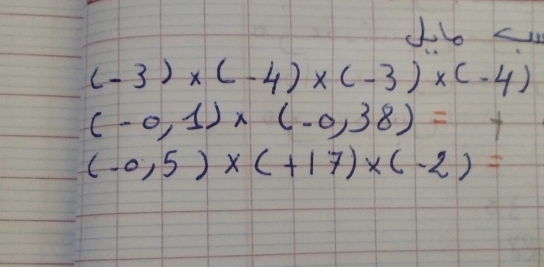 ـسب مايلي
(-3)×(-4)×(-3)×(-4)
(-0,1)×(-0,38) = +
(-0,5)×(+17)×(-2) =